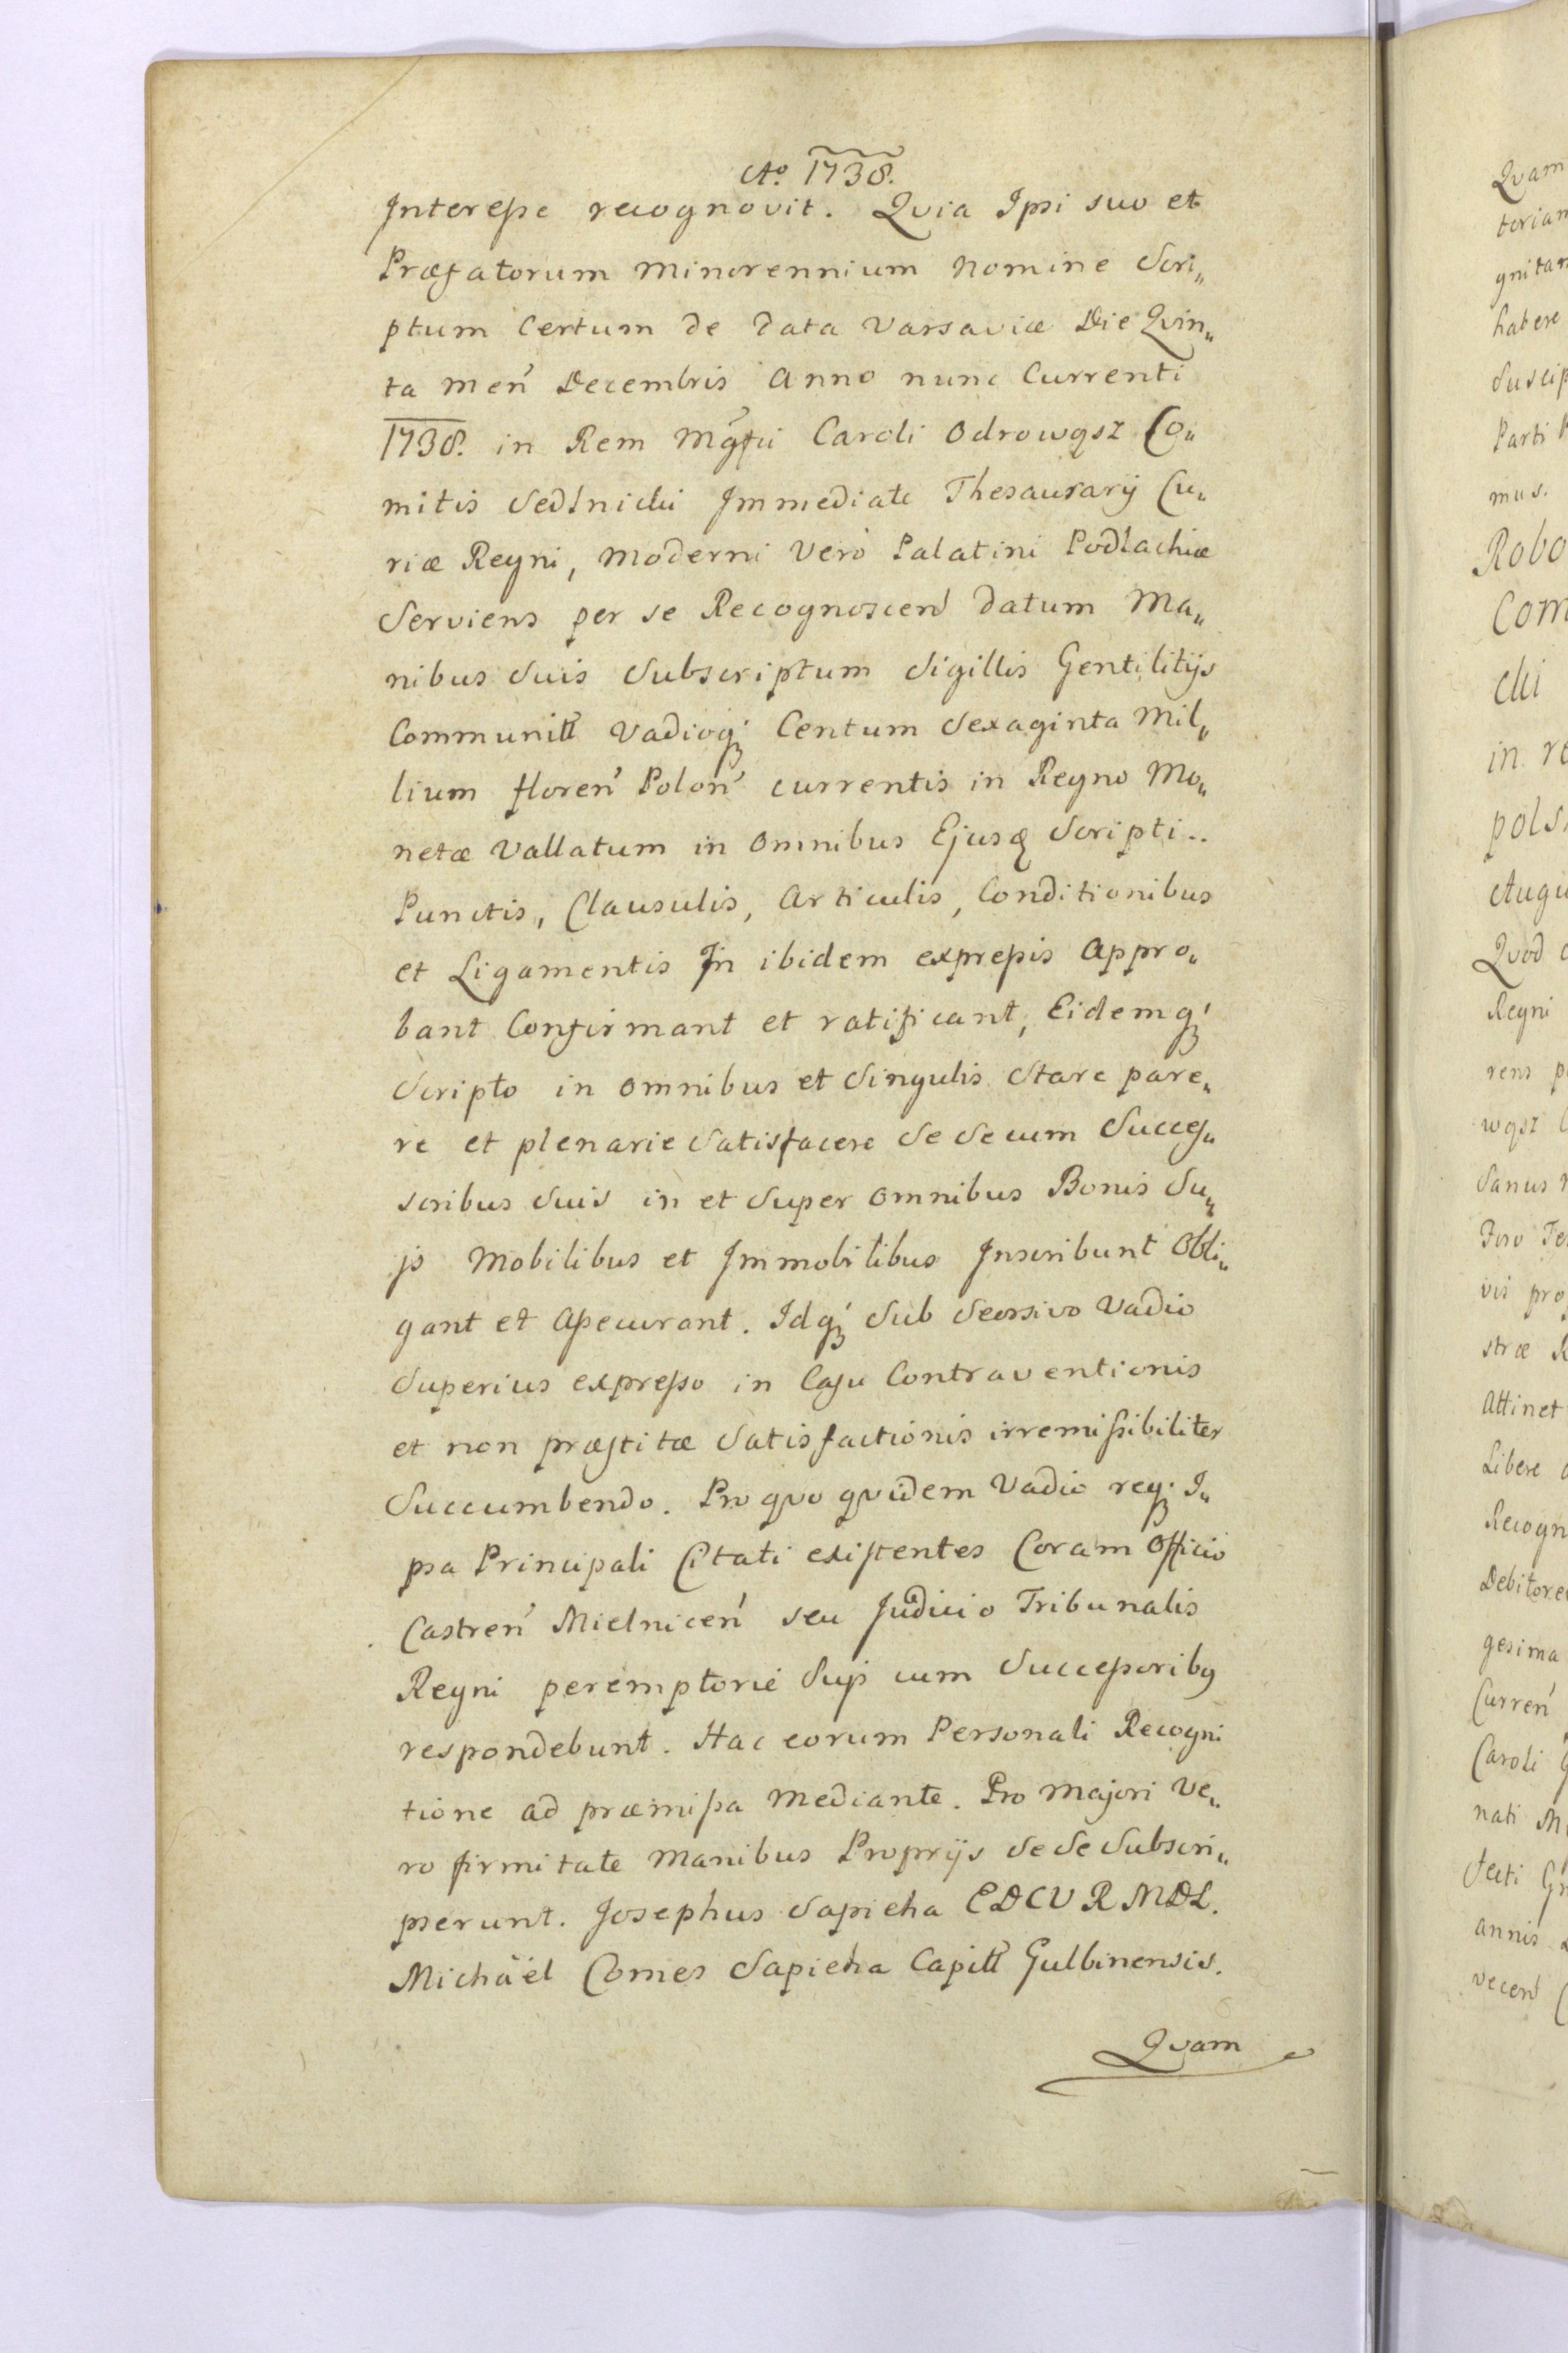 Ao. 1738.
Interesse recognovit. Qvia Ipsi suo et
Præfatorum Minorennium Nomine Scri„
ptum Certum de Data Varsaviæ Die Qvin„
ta Men̄ Decembris Anno nunc Currenti
1738. in Rem Mgfci Caroli Odrowąsz Co„
mitis Sedlnicki Immediate Thesaurarij Cu„
riæ Regni, Moderni Verò Palatini Podlachiæ
Serviens per se Recognoscen̄ Datum Ma„
nibus Suis Subscriptum Sigillis Gentilitijs
Communitt Vadioq; Centum Sexaginta Mil„
lium floren̄ Polon̄ currentis in Regno Mo„
netæ Vallatum in Omnibus Ejusq Scripti..
Punctis, Clausulis, Articulis, Conditionibus
et Ligamentis In ibidem expressis Appro„
bant Confirmant et ratificant, Eidemq;
Scripto in Omnibus et Singulis Stare pare„
re et plenarie Satisfacere Se Se cum Succes„
soribus Suis in et Super Omnibus Bonis Su„
js Mobilibus et Immobilibus Inscribunt Obli„
gant et Assecurant. Idq; Sub Seorsivo Vadio
Superius expresso in Casu Contraventionis
et non præstitæ Satisfactionis irremissibiliter
Succumbendo. Pro qvo qvidem Vadio req; I„
psa Principali Citati existentes Coram Officio
Castren̄ Mielnicen̄ seu Judicio Tribunalis
Regni peremptorie Suj cum Successoribq
respondebunt. Hac eorum Personali Recogni
tione ad præmissa Mediante. Pro Majori Ve„
ro firmitate Manibus Proprijs Se Se Subscri„
pserunt. Josephus Sapieha EDCVRMDL.
Michäel Comes Sapieha Capitt Gulbinensis.
Qvam
Qvam
torian
gnitan
habere
Suscip
Parti
mus.
Robo
Com
cki
in re
pols
Augu
Quod
Regni
rens p
wąsz
Sanus
Foro Te
vis pro
stræ R
Attinet
Libere
Recogn
Debitore
gesima
Curren̄
Caroli
nati M
Steti Gn
annis
vecen̄